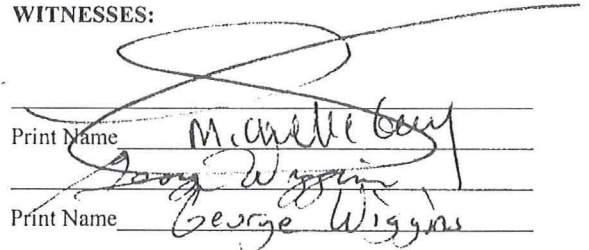 WITNESSES:
Print Name Michelle
George Wiggins
Print Name George Wiggins